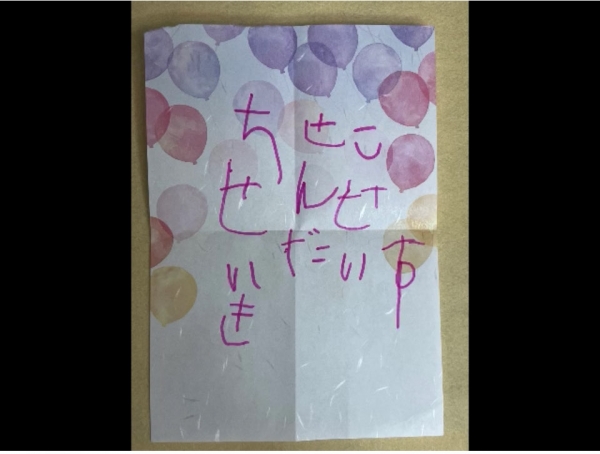 す
こせい
せんだ
ちせいき